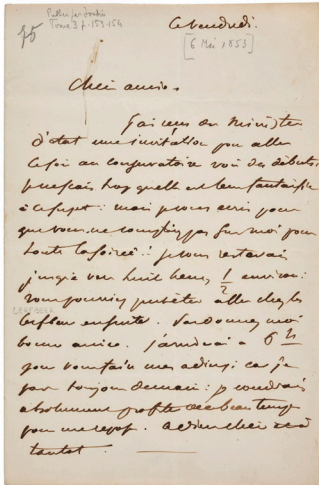 75
Publié par Joubin
Tome 3 p. 153-154
Ce vendredi.
[6 Mai 1853]
Chère amie.
J'ai reçu du Ministère
d'état une invitation pour aller
ce soir au conservatoire voir des débuts.
je ne sais trop quelle est leur fantaisie
à ce sujet : mais je vous écris pour
que vous ne comptiez pas sur moi pour
toute la soirée : je vous resterai
jusqu'à vers huit heures 1/2 environ :
vous pourriez peut-être aller chez les
enfants. Pardonnez moi
bonne amie. j'arriverai à 6 h
pour vous faire mes adieux : car je
pars toujours demain : je voudrais
absolument profiter de ce beau temps
pour me reposer. Adieu chère et à
tantot.